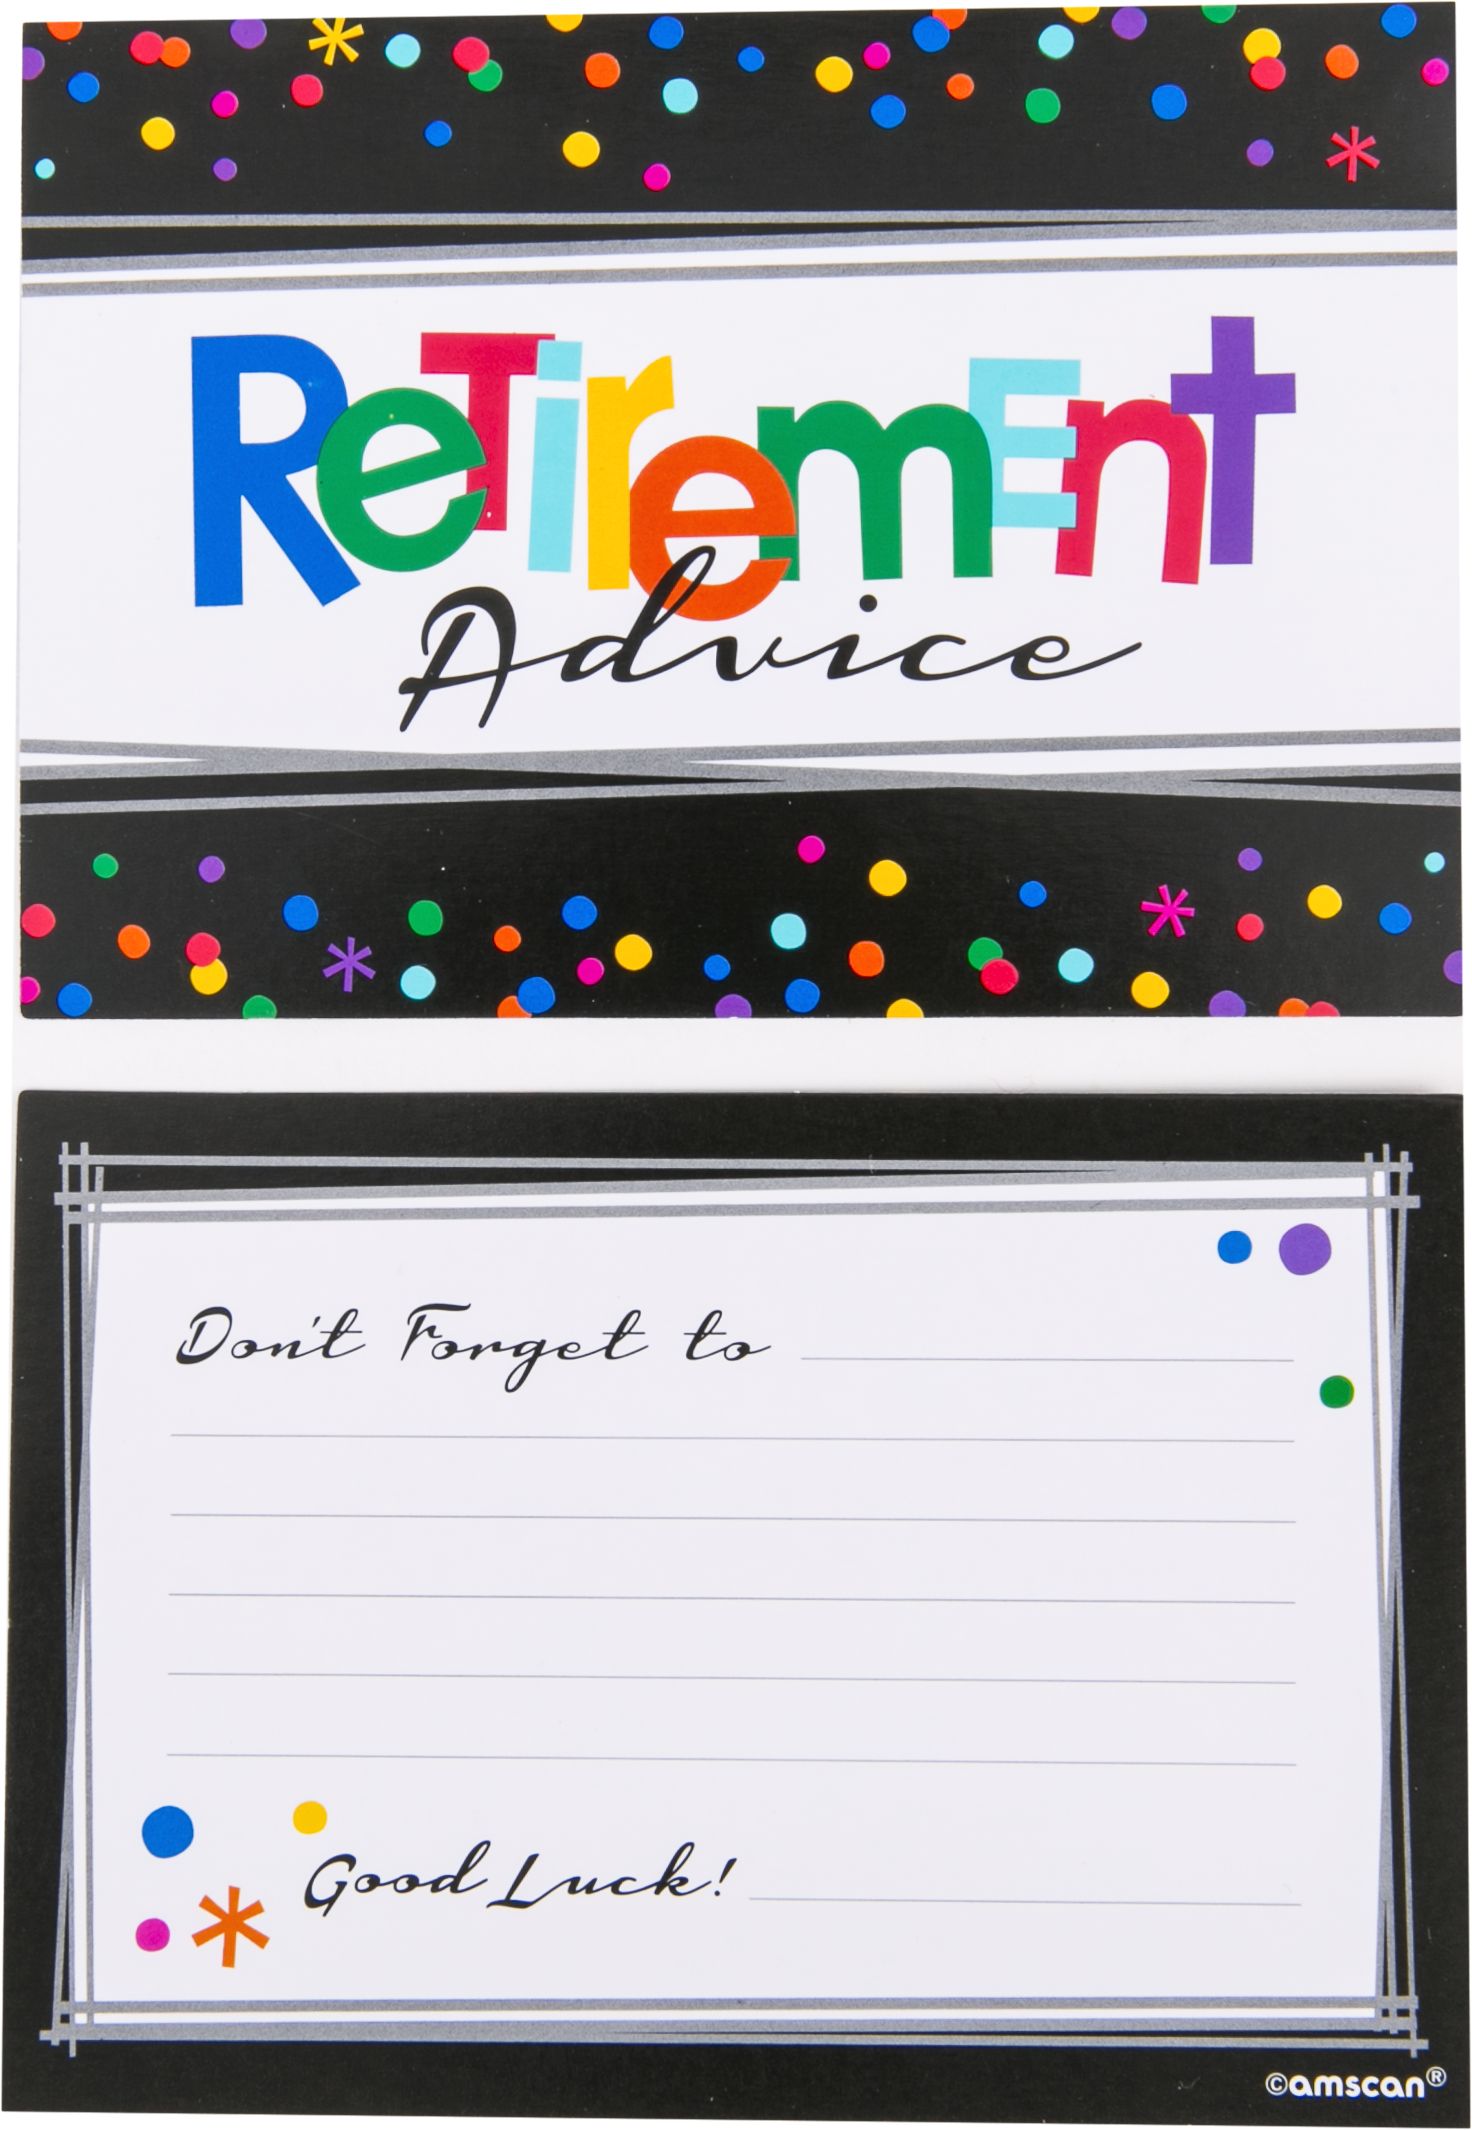 ReTirement
Advice
Don't Forget to
Good Luck!
©amscan®